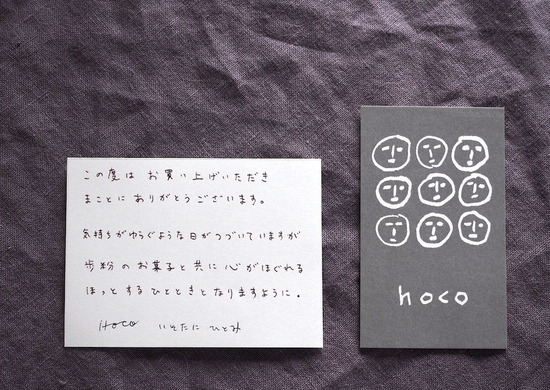 この度は お買い上げいただき
まことに ありがとうございます。
気持ちがゆらぐような日がつづいていますが
歩粉のお菓子と共に 心がほぐれる
ほっと するひとときとなりますように.
Hoco いそたに ひとみ
hoco